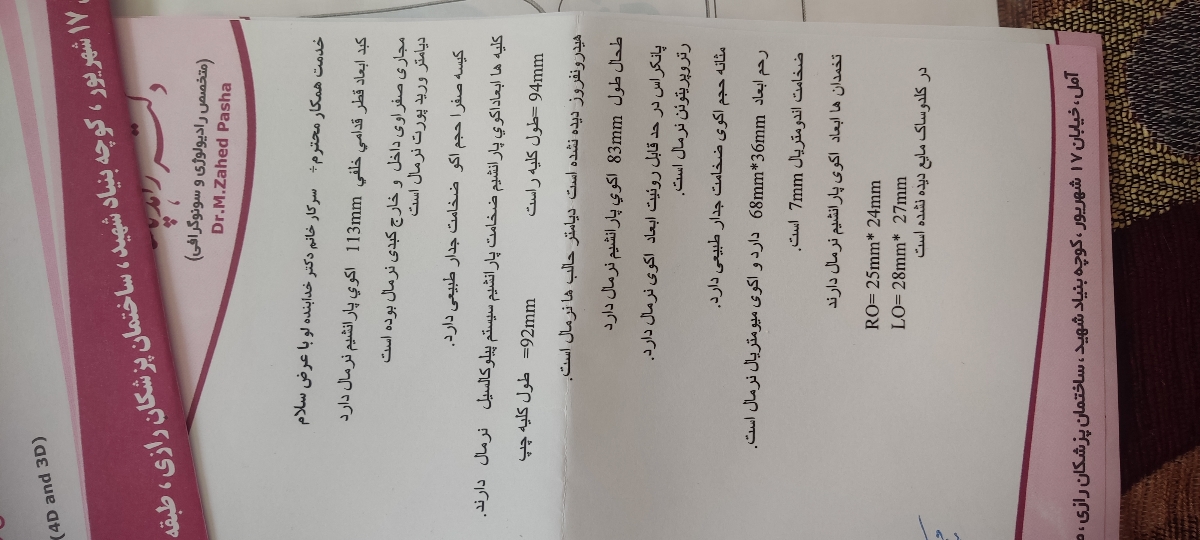 (4D and 3D)
، ۱۷ شهریور ، کوچه بنیاد شهید ، ساختمان پزشکان رازی ، طبقه
دکتر
(متخصص رادیولوژی و سونوگرافی)
Dr.M.Zahed Pasha
خدمت همکار محترم ÷ سرکار خانم دکتر خدابنده لو با عرض سلام
کبد ابعاد قطر قدامي خلفي 113mm اکوي پارانشيم نرمال دارد
مجاری صفراوی داخل و خارج کبدی نرمال بوده است
دیامتر ورید پورت نرمال است
کیسه صفرا حجم اکو ضخامت جدار طبیعی دارد.
کلیه ها ابعاداکوي پارانشیم ضخامت پارانشیم سیستم پیلوکالسیل نرمال دارند.
طول کلیه راست =94mm طول کلیه چپ =92mm
هیدرونفروز دیده نشده است دیامتر حالب ها نرمال است.
طحال طول 83mm اکوي پارانشیم نرمال دارد
پانکراس در حد قابل رونیت ابعاد اکوی نرمال دارد.
رتروپریتوئن نرمال است.
مثانه حجم اکوی ضخامت جدار طبیعی دارد.
رحم ابعاد 68mm*36mm دارد و اکوی میومتریال نرمال است.
ضخامت اندومتریال 7mm است.
تخمدان ها ابعاد اکوی پارانشیم نرمال دارند
RO= 25mm* 24mm
LO= 28mm* 27mm
در کلدوساک مایع دیده نشده است
آمل ، خیابان ۱۷ شهریور ، کوچه بنیاد شهید ، ساختمان پزشکان رازی ،